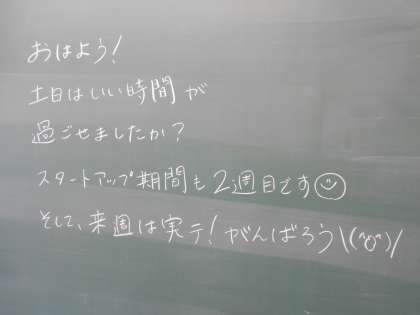 おはよう!
土日はいい時間が
過ごせましたか?
スタートアップ期間も2週目です☺
そして、来週は実テ!がんばろう\(^o^)/